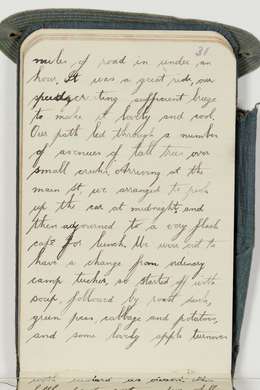 31
miles of road in under an
hour. It was a great ride, our
speed creating sufficient breeze
to make it lovely and cool.
Our path led through a number
of avenues of tall trees over
small creeks. Arriving at the
main St we arranged to pick
up the car at midnight, and
then adjourned to a very flash
cafe for lunch. We were out to
have a change from ordinary
camp tucker, so started off with
soup, followed by roast
green peas cabbage and potatoes,
and some lovely apple turnover
with custard as